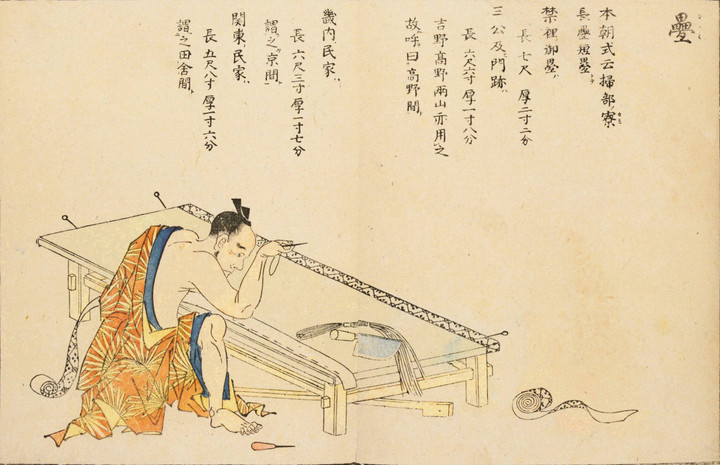 疊
本朝式云掃部寮
長疊短疊
禁裡御疊
長七尺 厚二寸二分
三公及門跡
長六尺六寸 厚一寸八分
吉野髙野兩山亦用之
故呼曰髙野間
畿内民家
長六尺三寸 厚一寸七分
謂之京間
関東民家
長五尺八寸 厚一寸六分
謂之田舎間